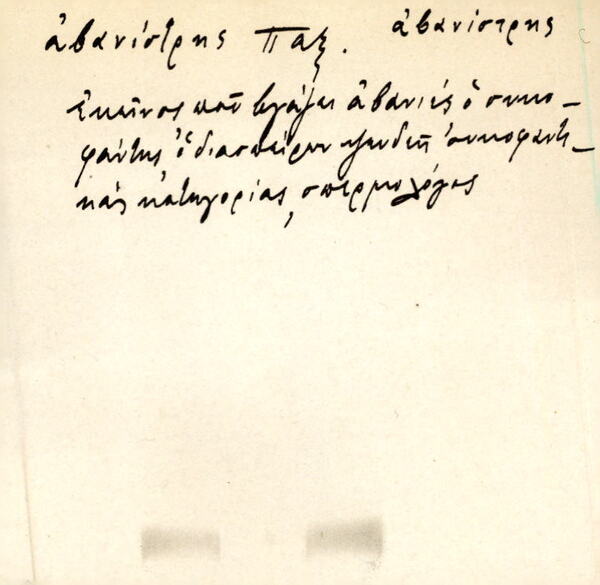 ἀβανίστρης Παξ. ἀβανίστρης
ἐκεῖνος ποῦ βγάζει ἀβανιές ὁ συκο-
φάντης, ὁ διασπείρων ψευδεῖς συκοφαντι-
κὰς κατηγορίας, σπερμολόγος